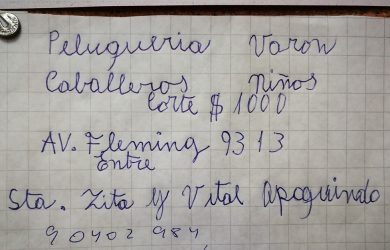 Peluqueria Varon
Caballeros Niños
Corte $ 1000
AV. Fleming 9313
Entre
Sta. Zita y Vital Apoquindo
90402984